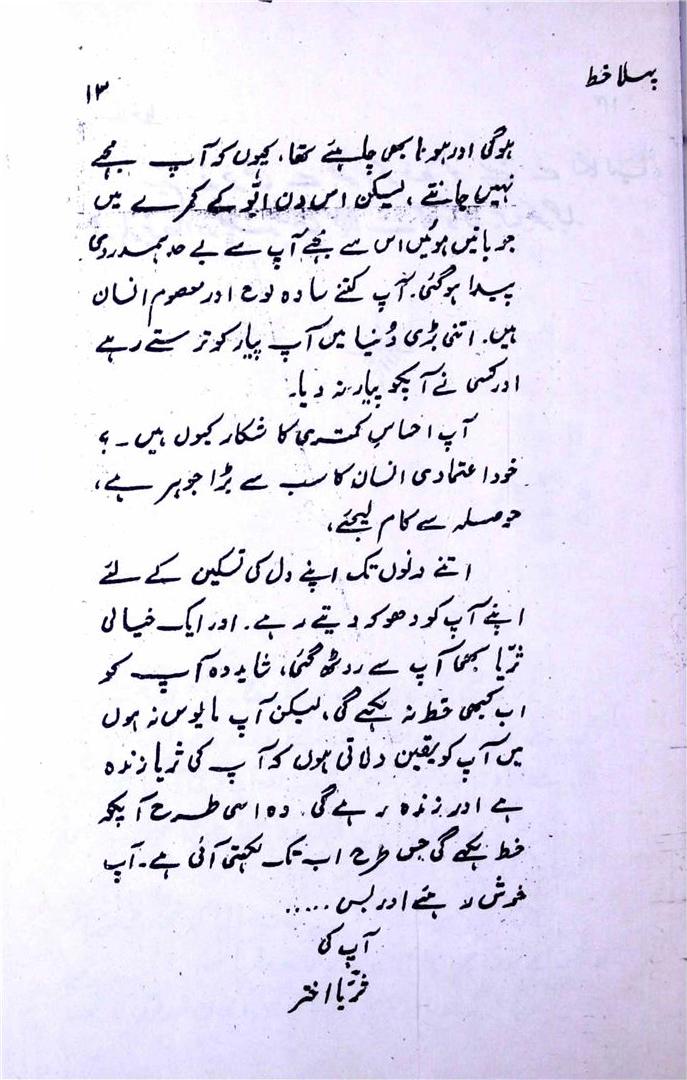 پہلا خط
۱۳
ہوگی اور ہونا بھی چاہیئے تھا، کیوں کہ آپ مجھے
نہیں جانتے، لیکن اس دن ابّو کے کمرے میں
جو باتیں ہوئیں اس سے مجھے آپ سے بے حد ہمدردی
پیدا ہوگئی۔ آپ کتنے سادہ لوح اور معصوم انسان
ہیں۔ اتنی بڑی دُنیا میں آپ پیار کو ترستے رہے
اور کسی نے آپکو پیار نہ دیا۔
آپ احساسِ کمتری کا شکار کیوں ہیں۔؟
خود اعتمادی انسان کا سب سے بڑا جوہر ہے،
حوصلہ سے کام لیجئے،
اتنے دنوں تک اپنے دل کی تسکین کے لئے
اپنے آپ کو دھوکہ دیتے رہے۔ اور ایک خیالی
ثریّا بھی آپ سے روٹھ گئی، شاید وہ آپ کو
اب کبھی خط نہ لکھے گی، لیکن آپ مایوس نہ ہوں
میں آپ کو یقین دلاتی ہوں کہ آپ کی ثریا زندہ
ہے اور زندہ رہے گی۔ وہ اسی طرح آپکو
خط لکھے گی جس طرح اب تک لکھتی آئی ہے۔ آپ
خوش رہئے اور بس .....
آپ کی
ثریّا اختر